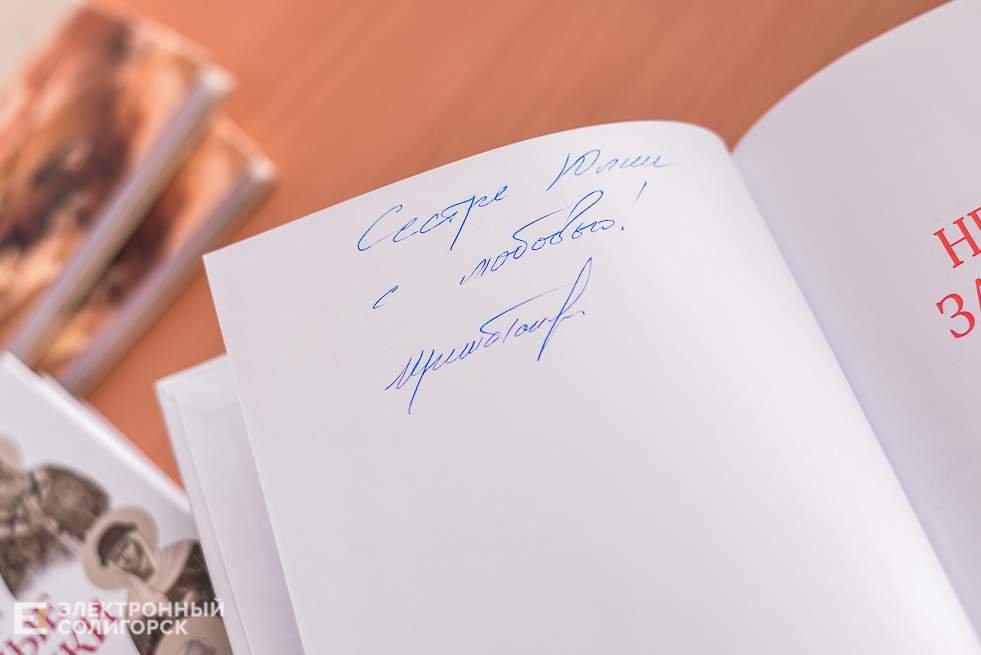 Сестре Юлии
с любовью!
НЕ
ЗА
ЭЛЕКТРОННЫЙ
СОЛИГОРСК